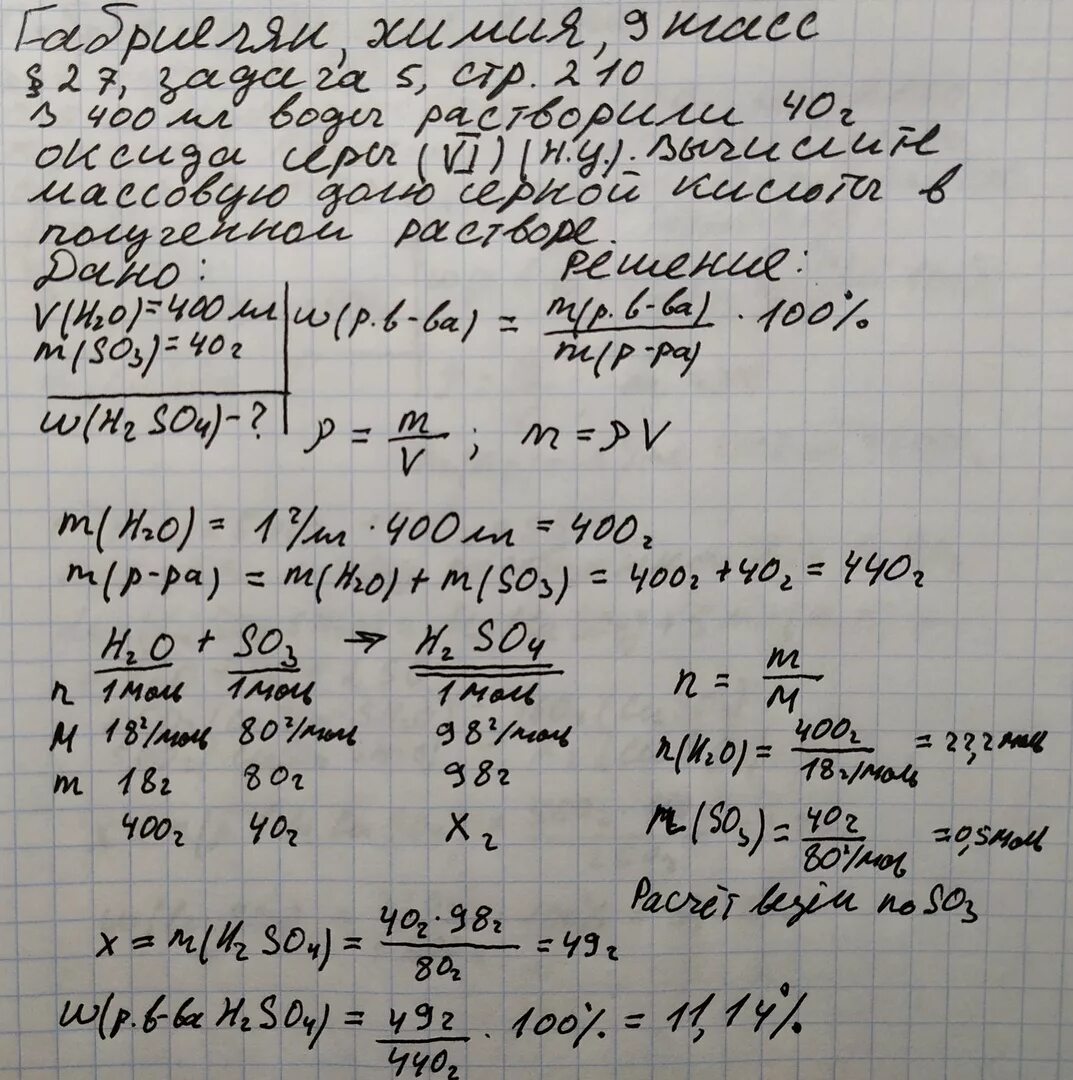 Габриелян, химия, 9 класс
§ 27, задача 5, стр. 210
В 400 мл воды растворили 40г
оксида серы (VI) (н.у.). Вычислите
массовую долю серной кислоты в
полученном растворе.
Дано: Решение:
V(H₂O)=400 мл
m(SO₃)=40г
w(H₂SO₄)-?
w(р.в-ва) = m(р.в-ва)/m(р-ра) · 100%
ρ = m/V ; m = ρV
m(H₂O) = 1 г/мл · 400 мл = 400г
m(р-ра) = m(H₂O) + m(SO₃) = 400г + 40г = 440г
H₂O + SO₃ → H₂SO₄
n 1 моль 1 моль 1 моль
M 18 г/моль 80 г/моль 98 г/моль
m 18г 80г 98г
400г 40г X г
n = m/M
n(H₂O) = 400г/18г/моль = 22,2 моль
n(SO₃) = 40г/80 г/моль = 0,5 моль
Расчёт ведём по SO₃
x = m(H₂SO₄) = 40г·98г/80г = 49г
w(р.в-ва H₂SO₄) = 49г/440г · 100% = 11,14%